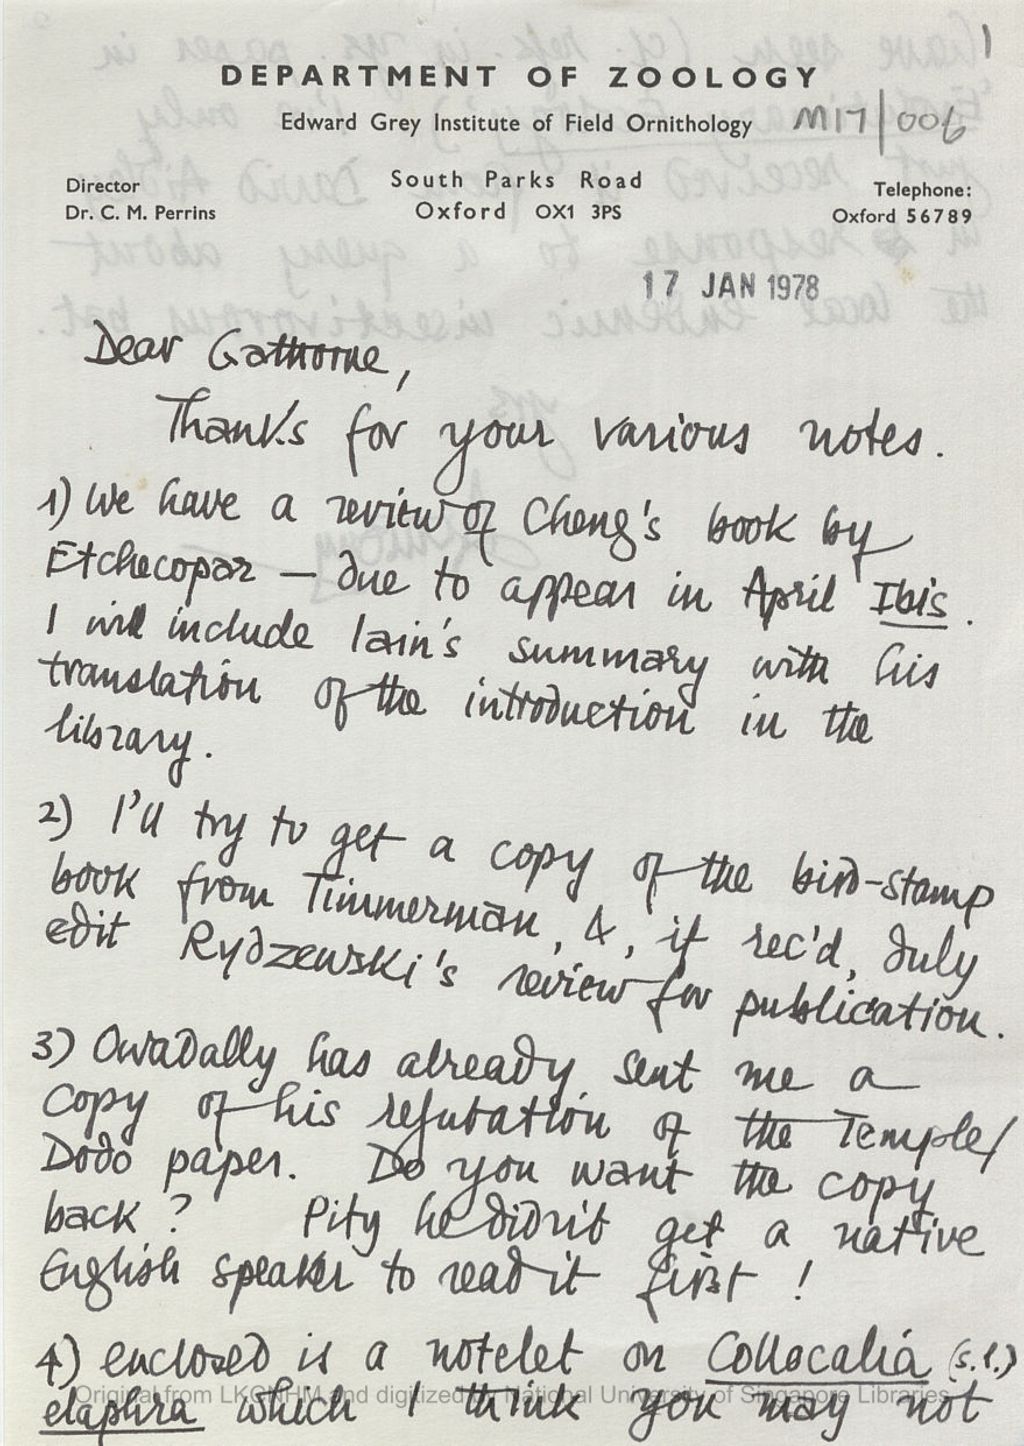 1
DEPARTMENT OF ZOOLOGY
Edward Grey Institute of Field Ornithology M17/006
Director
Dr. C. M. Perrins
South Parks Road
Oxford OX1 3PS
Telephone:
Oxford 56789
17 JAN 1978
Dear Gathorne,
Thanks for your various notes.
1) We have a review of Cheng's book by
Etchecopar — due to appear in April Ibis.
I will include Iain's summary with his
translation of the introduction in the
library.
2) I'll try to get a copy of the bird-stamp
book from Timmerman, &, if rec'd, duly
edit Rydzewski's review for publication.
3) Owadally has already sent me a
copy of his refutation of the Temple/
Dodo paper. Do you want the copy
back? Pity he didn't get a native
English speaker to read it first!
4) enclosed is a notelet on Collocalia (s.l.)
elaphra which I think you may not
Original from LKCNHM and digitized by National University of Singapore Libraries